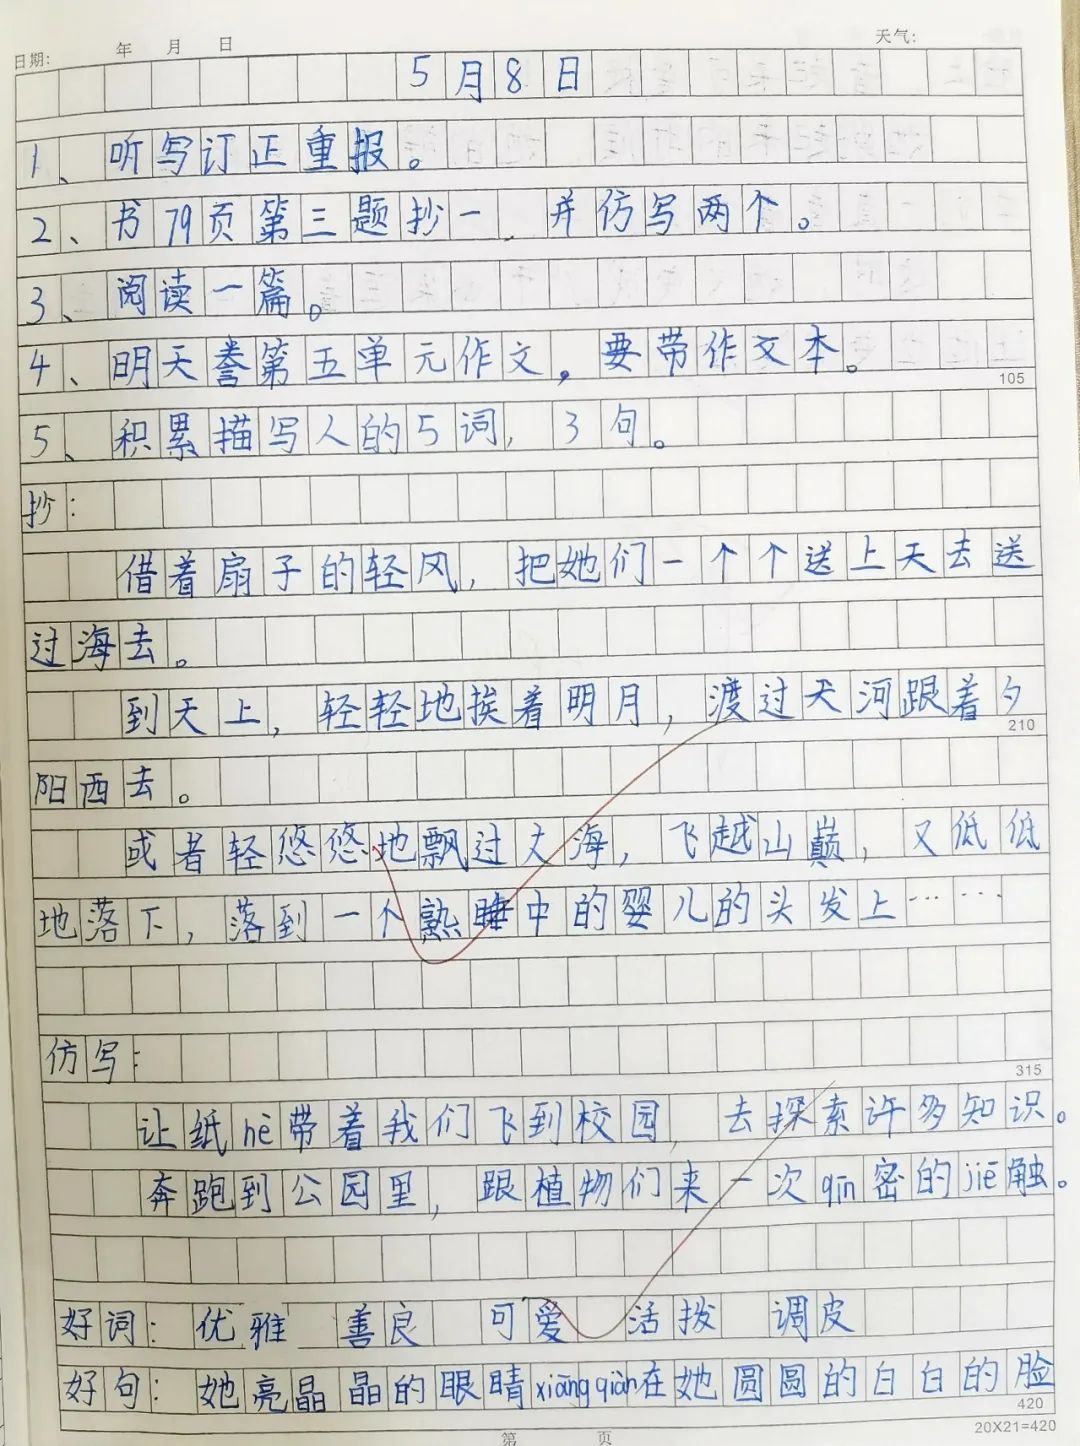 日期： 年 月 日 天气：
5月8日
1、听写订正重报。
2、书79页第三题抄一 并仿写两个。
3、阅读一篇。
4、明天誊第五单元作文，要带作文本。
105
5、积累描写人的5词，3句。
抄：
借着扇子的轻风，把她们一个个送上天去送
过海去。
到天上，轻轻地挨着明月，渡过天河跟着夕
210
阳西去。
或者轻悠悠地飘过大海，飞越山巅，又低低
地落下，落到一个熟睡中的婴儿的头发上……
仿写：
315
让纸hè带着我们飞到校园，去探索许多知识。
奔跑到公园里，跟植物们来一次qīn密的jiē触。
好词：优雅 善良 可爱 活拨 调皮
好句：她亮晶晶的眼睛xiāng qiàn在她圆圆的白白的脸
420
第 页 20X21=420